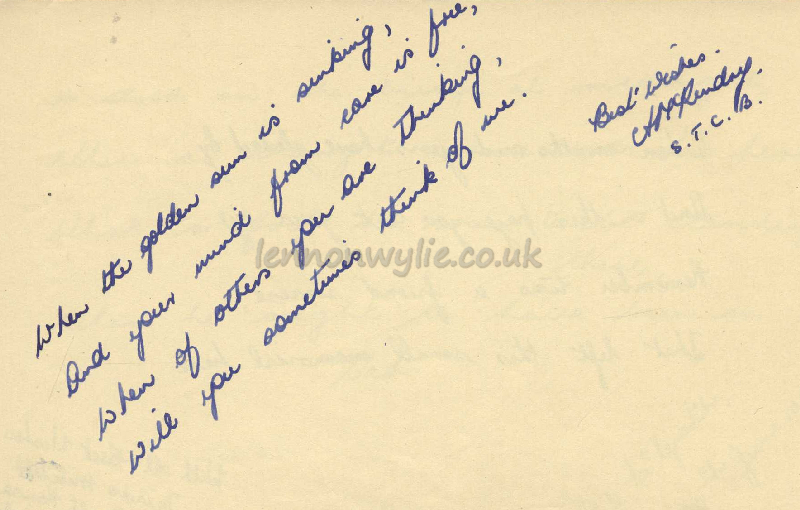 When the golden sun is sinking,
And your mind from care is free,
When of others you are thinking,
Will you sometimes think of me.
Best Wishes.
S.T.C.B.
lennonwylie.co.uk